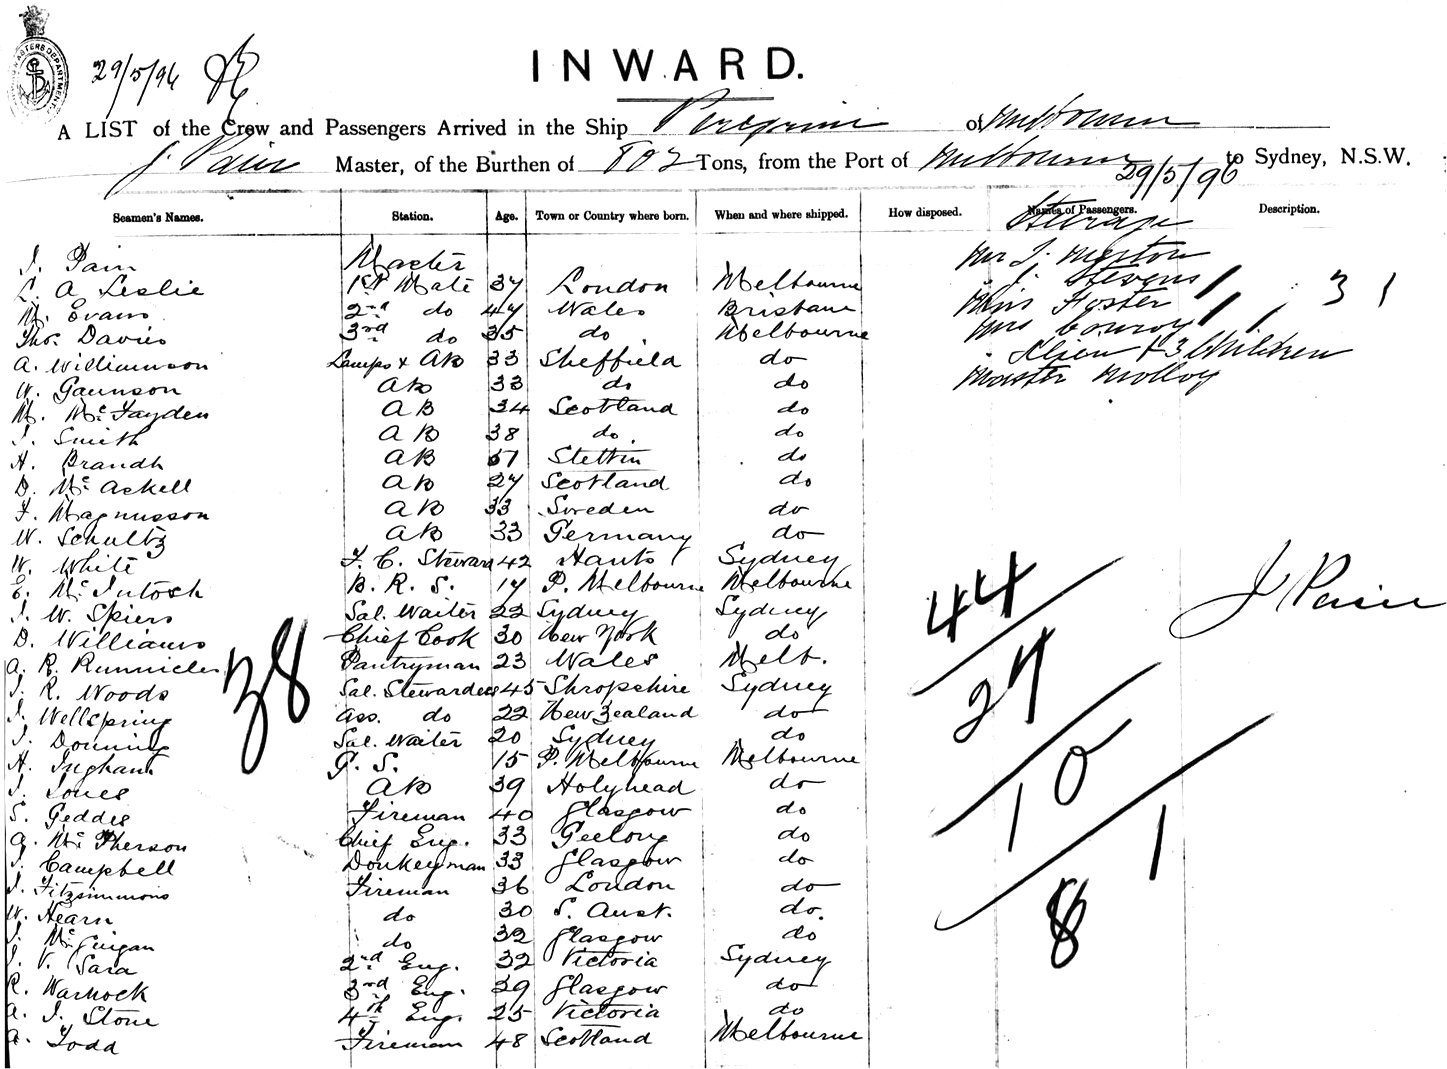 29/5/96
INWARD.
A LIST of the Crew and Passengers Arrived in the Ship Peregrine of Melbourne
J. Pain Master, of the Burthen of 802 Tons, from the Port of Melbourne to Sydney, N.S.W.
29/5/96
Seamen's Names. Station. Age. Town or Country where born. When and where shipped. How disposed. Names of Passengers. Description.
Steerage
J. Pain Master
L. A Leslie 1st Mate 37 London Melbourne
M. Evans 2nd do 47 Wales Brisbane
Thos. Davies 3rd do 35 do Melbourne
A. Williamson Lamps & AB 33 Sheffield do
W. Gaunson AB 33 do do
M. McFayden AB 34 Scotland do
J. Smith AB 38 do. do
H. Brandh AB 51 Stettin do
D. McAskell AB 27 Scotland do
F. Magnusson AB 33 Sweden do
W. Schultz AB 33 Germany do
W. White F. C. Steward 42 Hants Sydney
E. McIntosh B. R. S. 17 P. Melbourne Melbourne
J. W. Spiers Sal. Waiter 22 Sydney Sydney
D. Williams Chief Cook 30 New York do
A. R. Runnicles Pantryman 23 Wales Melb.
J. R. Woods Sal. Stewardess 45 Shropshire Sydney
J. Wellspring Ass. do 22 New Zealand do
J. Donning Sal. Waiter 20 Sydney do
H. Ingham G. S. 15 P. Melbourne Melbourne
J. Jones AB 39 Holyhead do
S. Geddes Fireman 40 Glasgow do
G. McPherson Chief Eng. 33 Geelong do
J. Campbell Donkeyman 33 Glasgow do
J. Fitzsimmons Fireman 36 London do
W. Hearn do 30 S. Aust. do.
J. McGuigan do 32 Glasgow do
J. V. Sara 2nd Eng. 32 Victoria Sydney
R. Warnock 3rd Eng. 39 Glasgow do
A. J. Stone 4th Eng. 25 Victoria do
A. Todd Fireman 48 Scotland Melbourne
38
Mr J. Meston
" J. Stevens
Miss Foster
Mrs Conroy
Alien & 3 Children
Master Molloy
3 1
44
27
10
1
8
J Pain